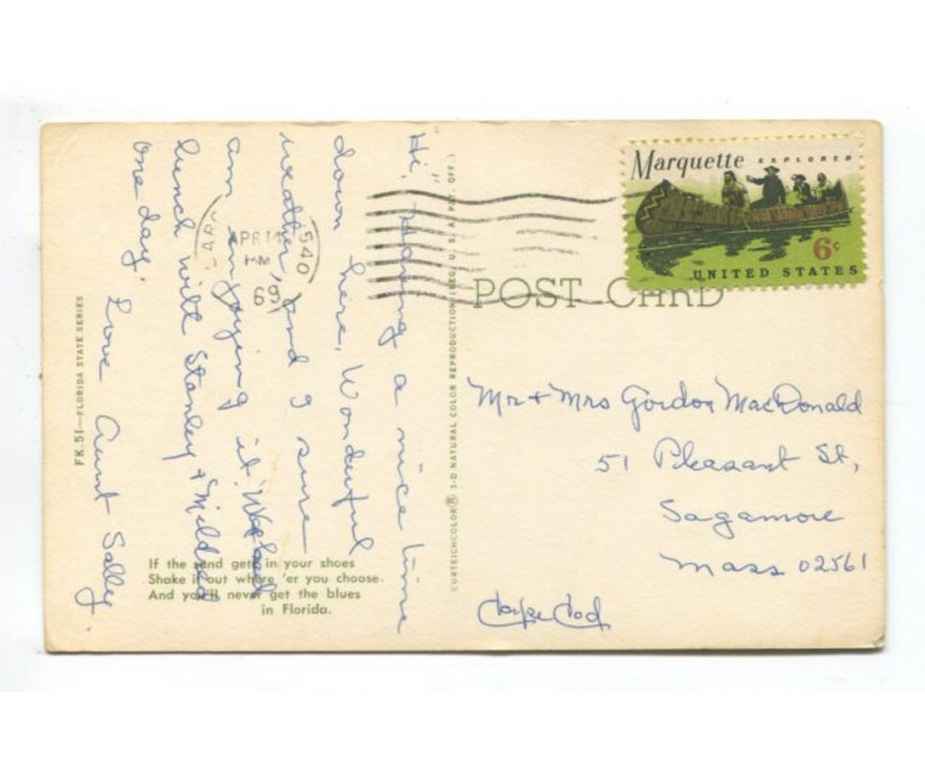 Hi, Having a nice time
down here, Wonderful
weather, and I sure
am enjoying it. We had
lunch with Stanley + Mildred
one day. Love Aunt Sally.
FK.51—FLORIDA STATE SERIES
If the sand gets in your shoes
Shake it out where 'er you choose.
And you'll never get the blues
in Florida.
APR 14
PM
69
540
CURTEICHCOLOR® 3-D NATURAL COLOR REPRODUCTION (REG. U.S.A. PAT. OFF.)
Marquette EXPLORER
6c
UNITED STATES
POST CARD
Mr + Mrs Gordon MacDonald
51 Pleasant St,
Sagamore
Mass 02561
Cape Cod